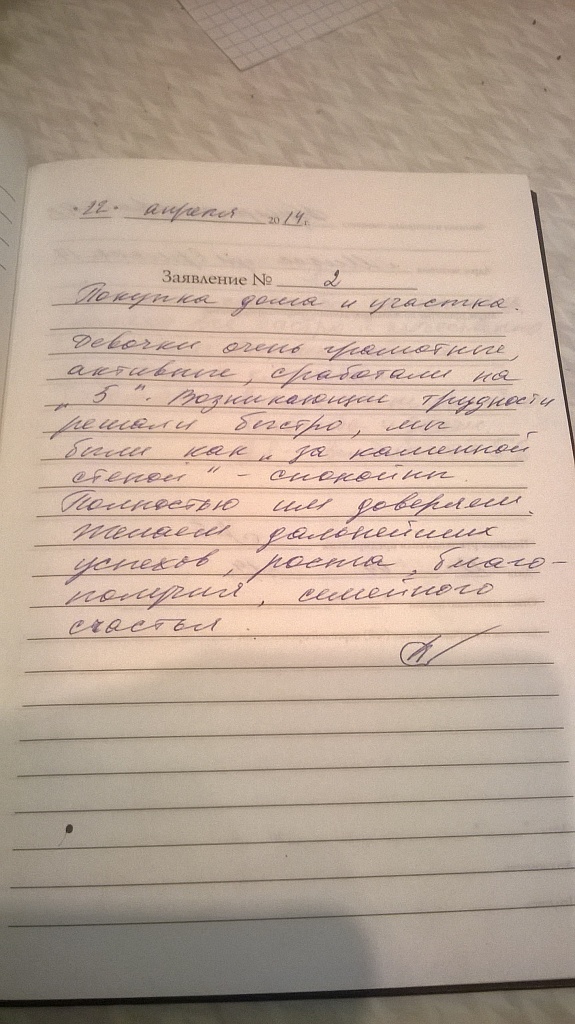 "22" апреля 2014 г.
Заявление № 2
Покупка дома и участка.
Девочки очень грамотные,
активные, сработали на
„5". Возникающие трудности
решали быстро, мы
были как „за каменной
стеной" - спокойны.
Полностью им доверяем.
Желаем дальнейших
успехов, роста, благо-
получия, семейного
счастья.